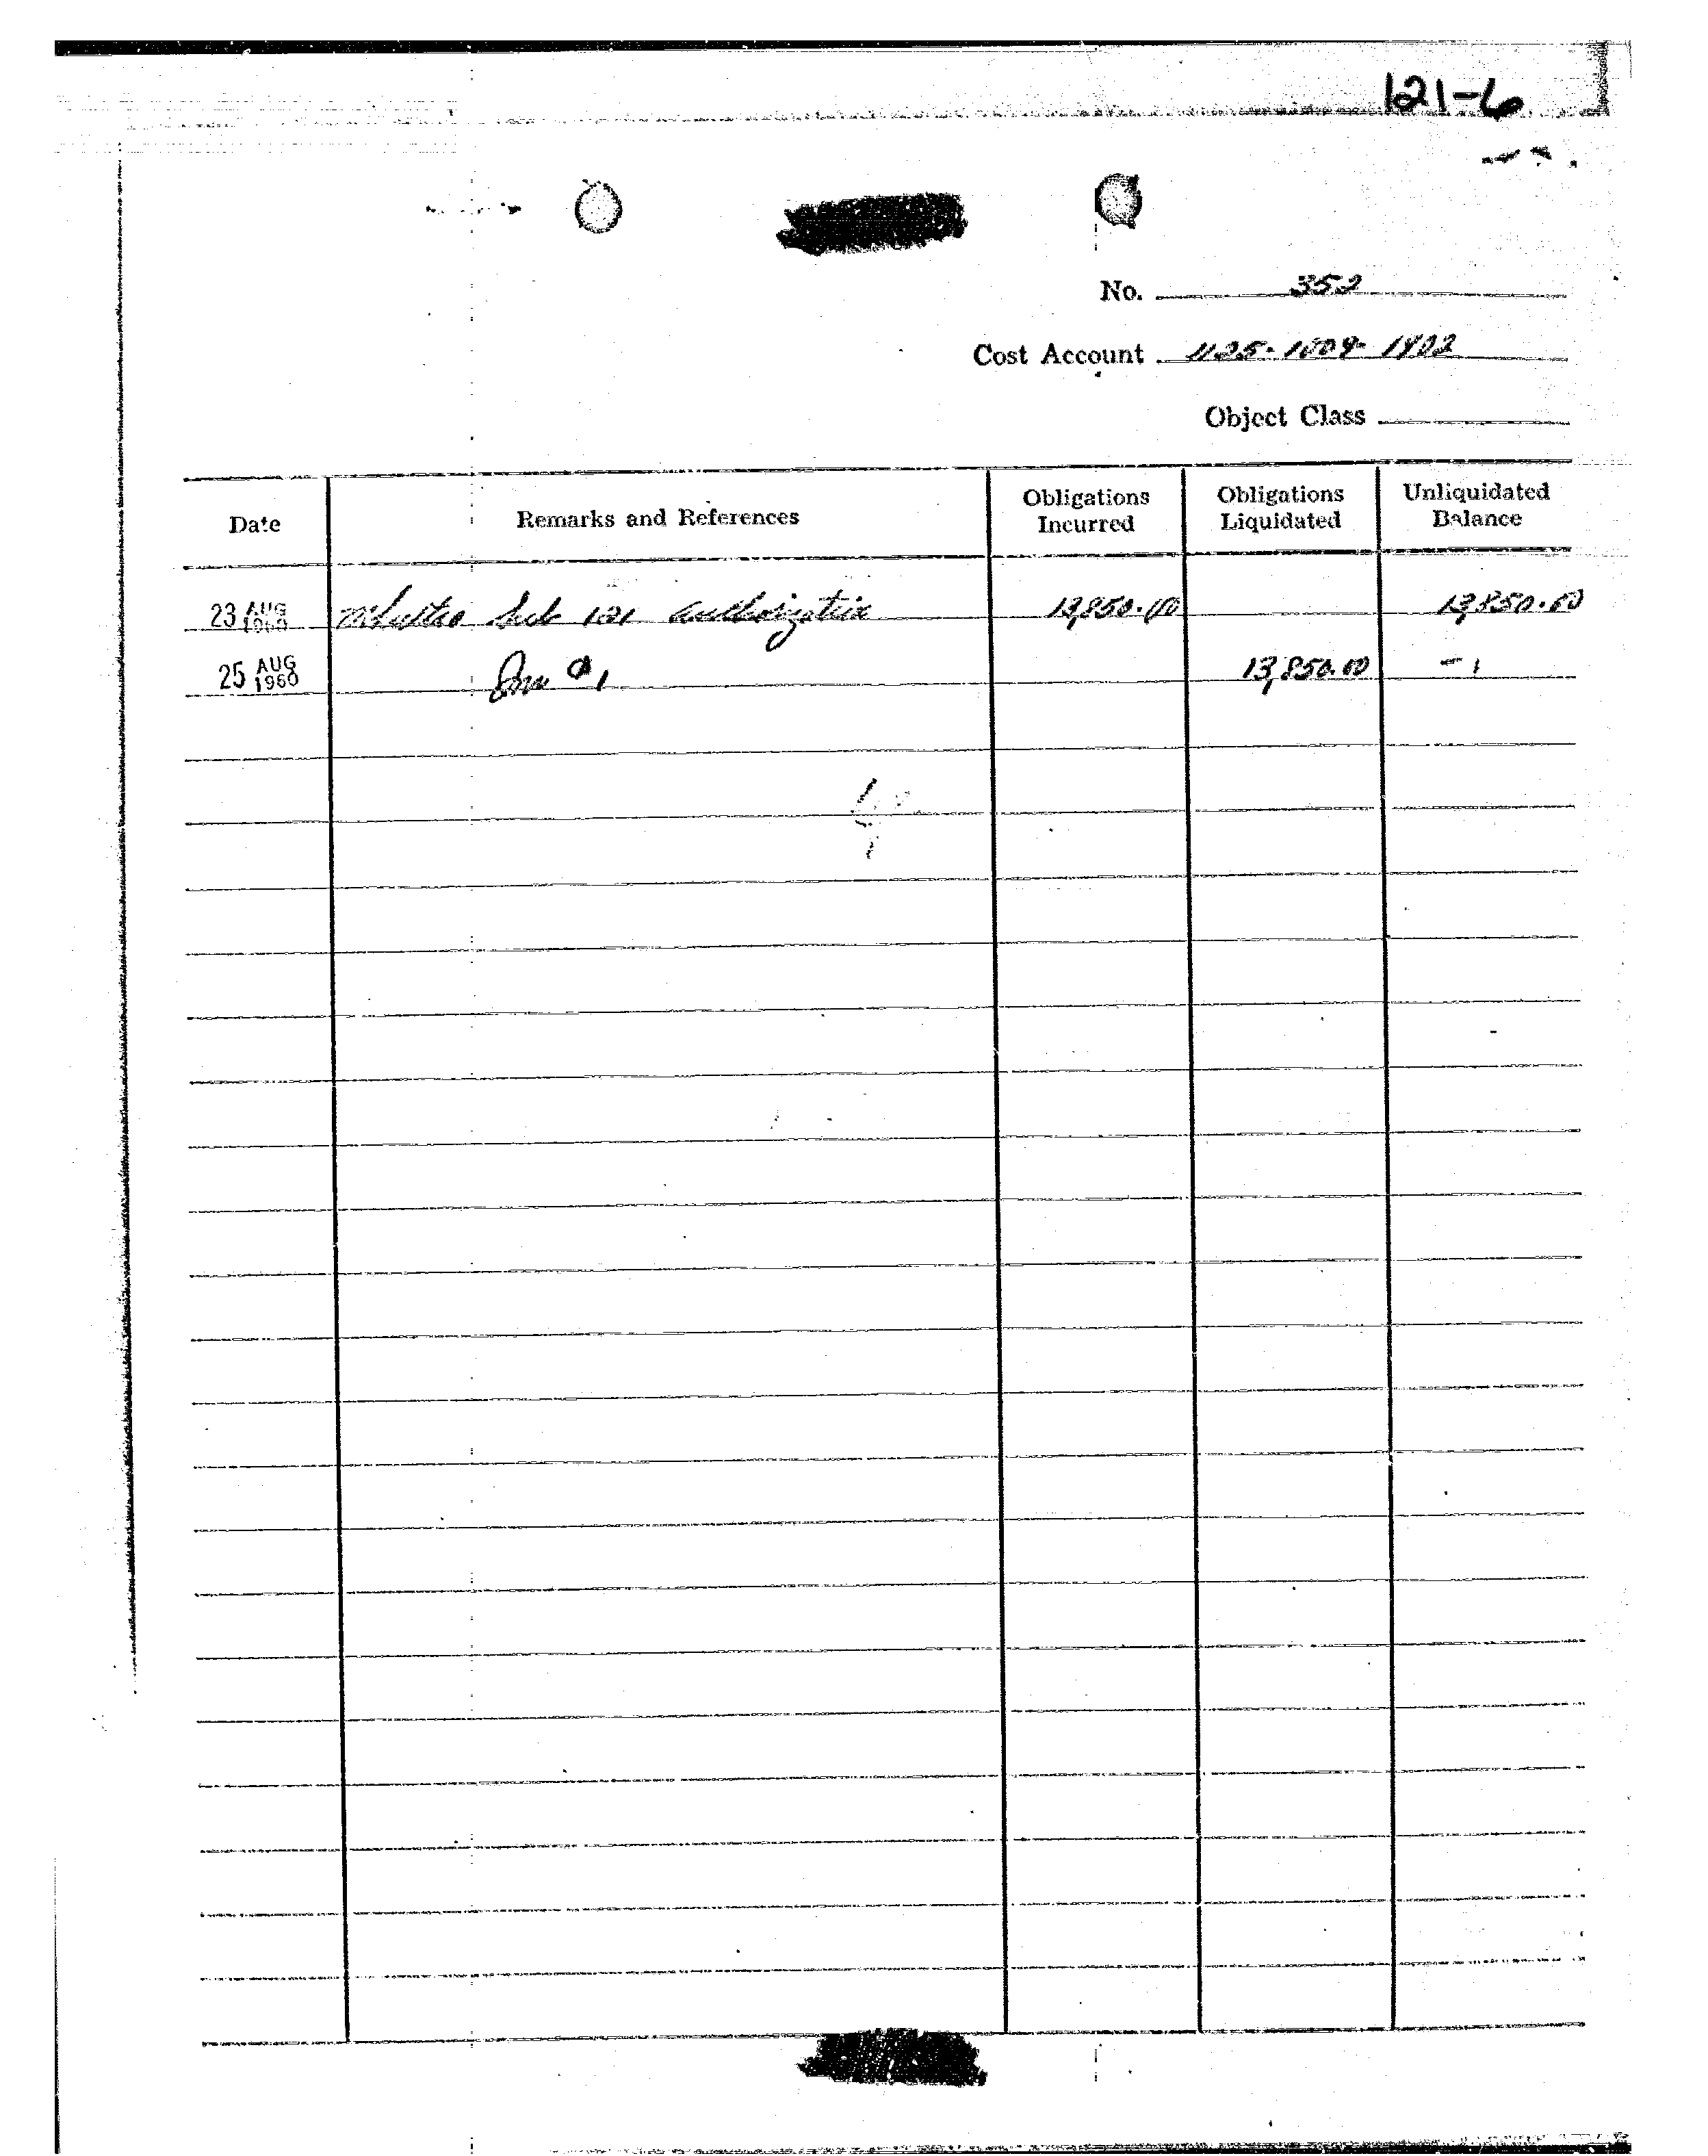 121-6
No. 352
Cost Account 1125-1009-1902
Object Class
Date Remarks and References Obligations Incurred Obligations Liquidated Unliquidated Balance
23 AUG 1960 Sub 121 authorization 13,850.00 13,850.00
25 AUG 1960 Inv #1 13,850.00 -